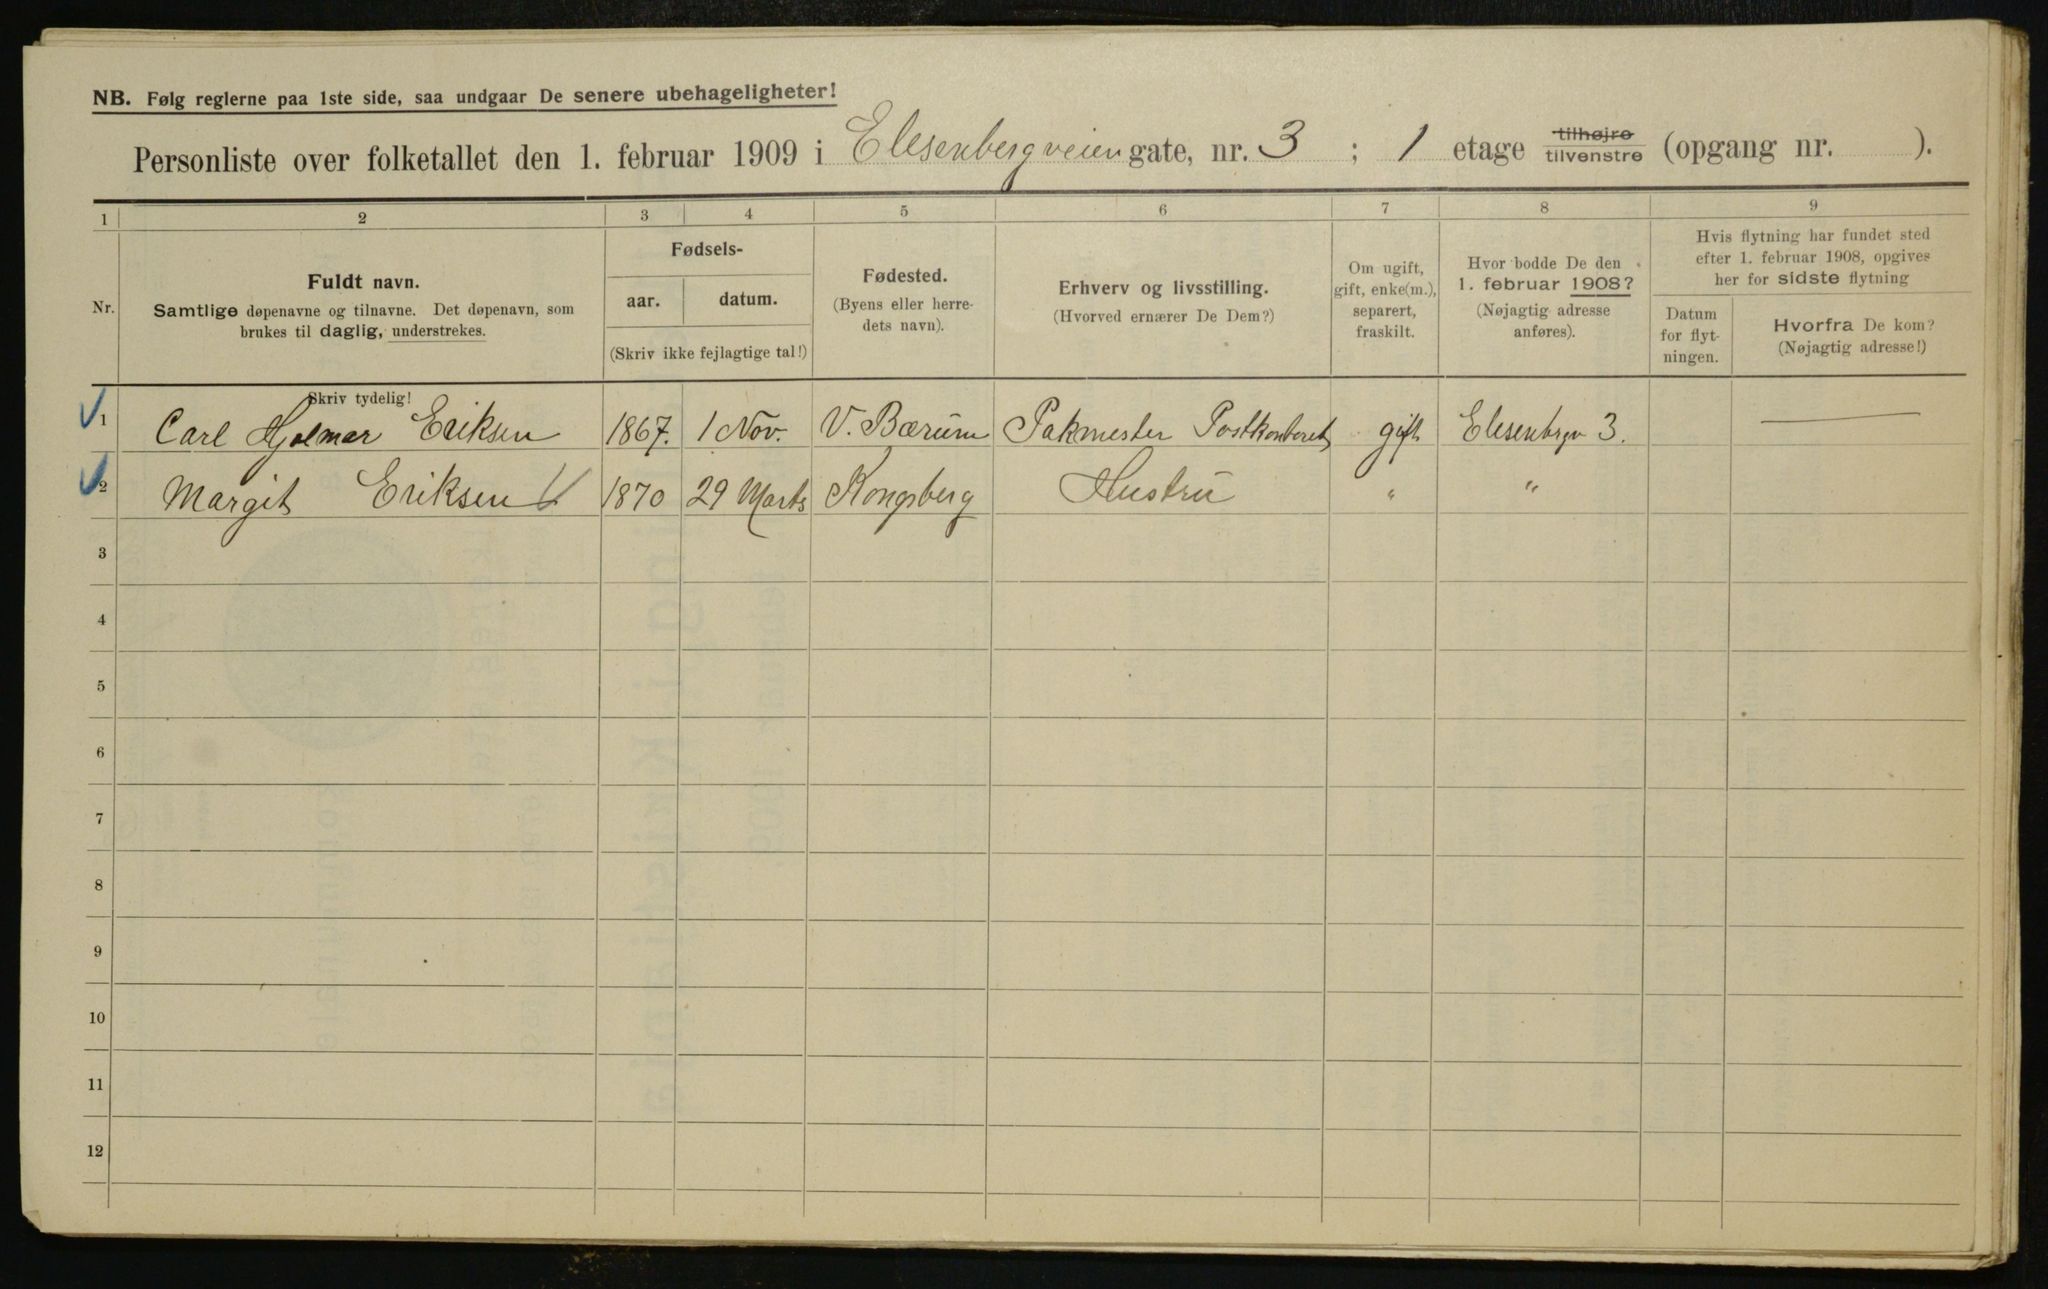 NB. Følg reglerne paa 1ste side, saa undgaar De senere ubehageligheter!
Personliste over folketallet den 1. februar 1909 i Elesenbergveien gate, nr. 3 ; 1 etage tilhøjre tilvenstre (opgang nr. ).
1 2 3 4 5 6 7 8 9
Nr.
Fuldt navn.
Samtlige døpenavne og tilnavne. Det døpenavn, som
brukes til daglig, understrekes.
Fødsels-
aar. datum.
(Skriv ikke fejlagtige tal!)
Fødested.
(Byens eller herre-
dets navn).
Erhverv og livsstilling.
(Hvorved ernærer De Dem?)
Om ugift,
gift, enke(m.),
separert,
fraskilt.
Hvor bodde De den
1. februar 1908?
(Nøjagtig adresse
anføres).
Hvis flytning har fundet sted
efter 1. februar 1908, opgives
her for sidste flytning
Datum
for flyt-
ningen.
Hvorfra De kom?
(Nøjagtig adresse!)
Skriv tydelig!
1 Carl Hjalmar Eriksen 1867. 1 Nov. V. Bærum Pakmester Postkontoret gift Elesenbrgv 3.
2 Margit Eriksen 1870 29 Marts Kongsberg Hustru " "
3
4
5
6
7
8
9
10
11
12